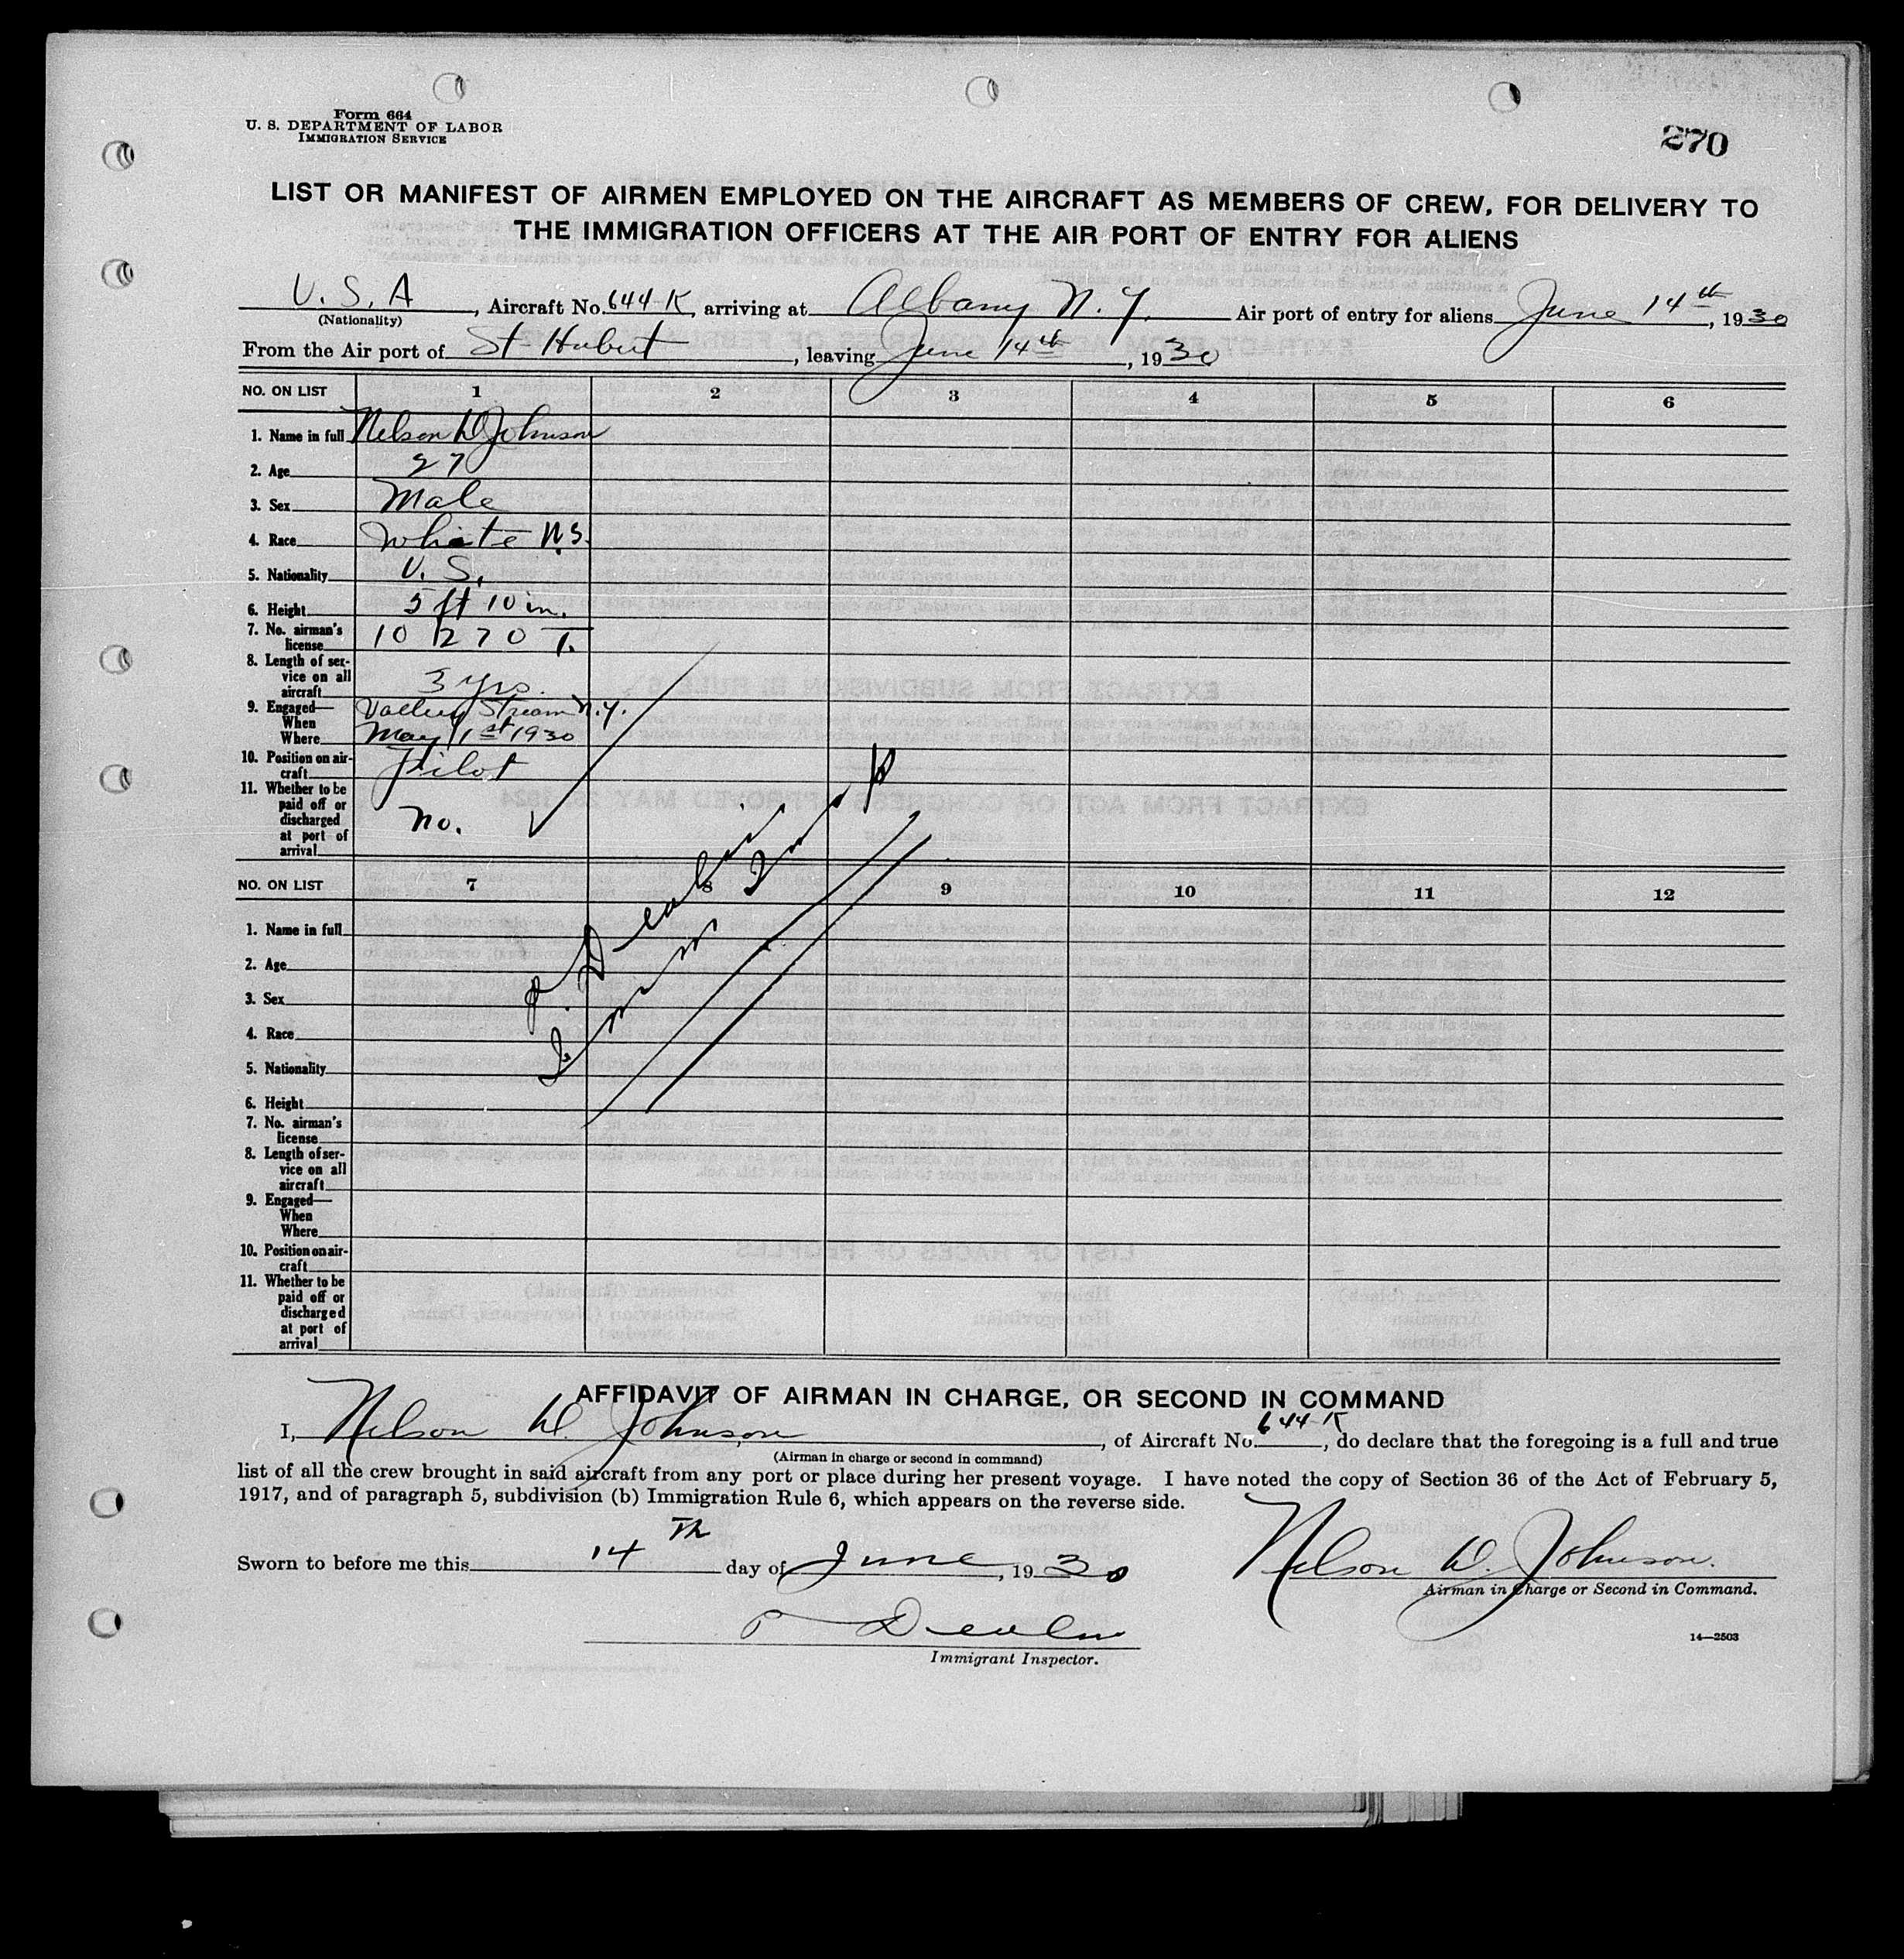 Form 664
U. S. DEPARTMENT OF LABOR
IMMIGRATION SERVICE
270
LIST OR MANIFEST OF AIRMEN EMPLOYED ON THE AIRCRAFT AS MEMBERS OF CREW, FOR DELIVERY TO
THE IMMIGRATION OFFICERS AT THE AIR PORT OF ENTRY FOR ALIENS
U.S.A, Aircraft No. 644-K, arriving at Albany N.Y. Air port of entry for aliens June 14th, 1930
(Nationality)
From the Air port of St Hubert, leaving June 14th, 1930
NO. ON LIST 1 2 3 4 5 6
1. Name in full Nelson W Johnson
2. Age 27
3. Sex Male
4. Race White
5. Nationality U.S.
6. Height 5 ft 10 in.
7. No. airman's
license 10270 T.
8. Length of ser-
vice on all
aircraft 3 yrs.
9. Engaged— Valley Stream N.Y.
When
Where May 1st 1930
10. Position on air-
craft Pilot
11. Whether to be
paid off or
discharged
at port of
arrival No.
NO. ON LIST 7 8 9 10 11 12
1. Name in full
2. Age
3. Sex
4. Race
5. Nationality
6. Height
7. No. airman's
license
8. Length of ser-
vice on all
aircraft
9. Engaged—
When
Where
10. Position on air-
craft
11. Whether to be
paid off or
discharged
at port of
arrival
AFFIDAVIT OF AIRMAN IN CHARGE, OR SECOND IN COMMAND
I, Nelson W. Johnson, of Aircraft No. 644-K, do declare that the foregoing is a full and true
(Airman in charge or second in command)
list of all the crew brought in said aircraft from any port or place during her present voyage. I have noted the copy of Section 36 of the Act of February 5,
1917, and of paragraph 5, subdivision (b) Immigration Rule 6, which appears on the reverse side.
Sworn to before me this 14th day of June, 1930
Nelson W. Johnson.
Airman in Charge or Second in Command.
Immigrant Inspector.
14—2503